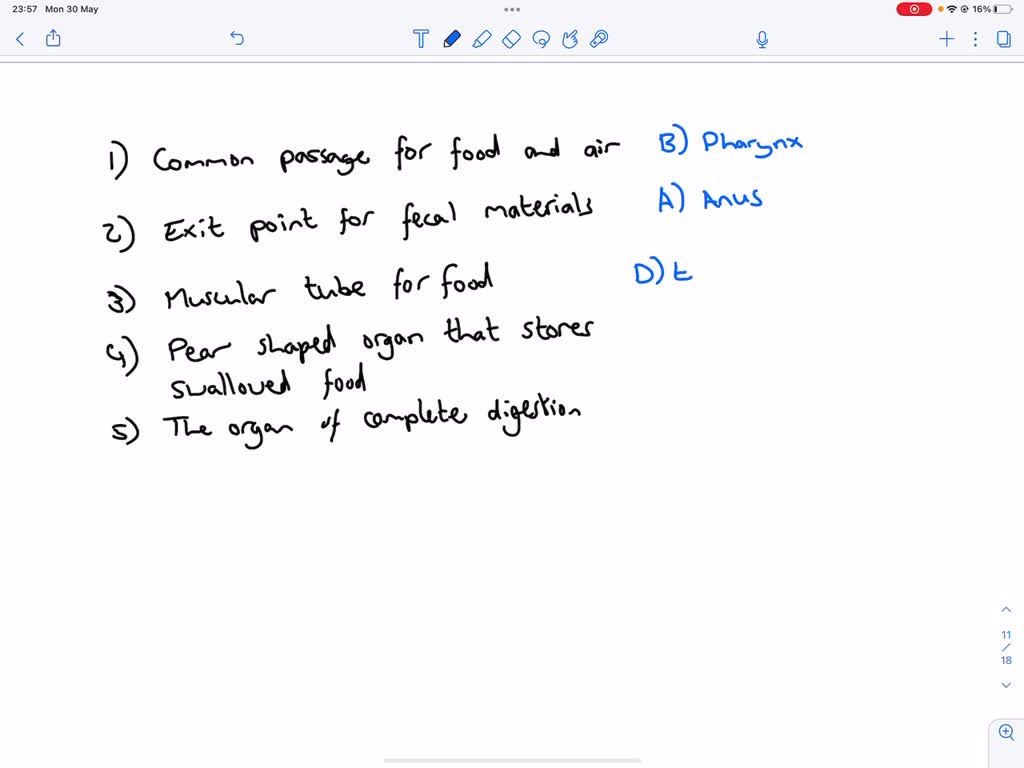 23:57 Mon 30 May
16%
1) Common passage for food and air B) Pharynx
2) Exit point for fecal materials A) Anus
3) Muscular tube for food D) E
4) Pear shaped organ that stores
swallowed food
5) The organ of complete digestion
11
/
18